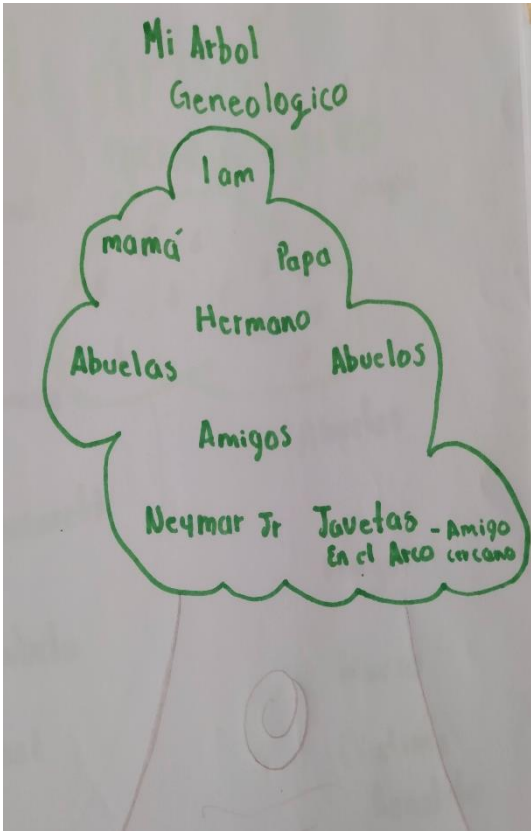 Mi Arbol
Geneologico
I am
mamá Papa
Hermano
Abuelas Abuelos
Amigos
Neymar Jr Javetas - Amigo
En el Arco cercano